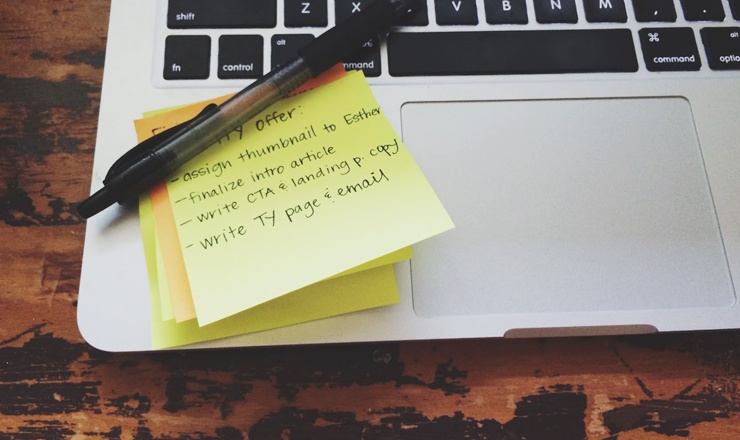 shift Z X C V B N M , .
fn control alt mmand ⌘ command alt optio
TY Offer:
- assign thumbnail to Esther
- finalize intro article
- write CTA & landing p. copy
- write TY page & email